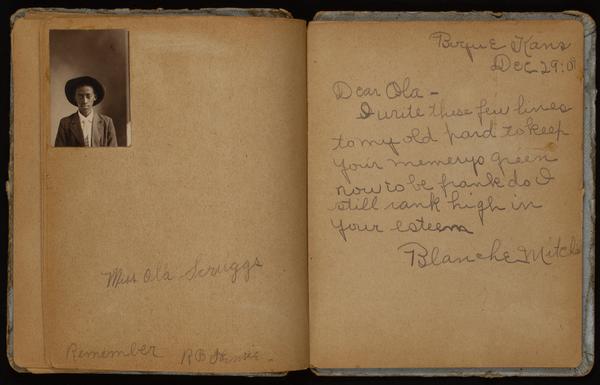 Miss Ola Scruggs
Remember RB
Kans
Dec 29:0
Dear Ola -
I write these few lines
to my old pard to keep
Your memerys green
now to be frank do I
still rank high in
Your esteem
Blanche Mitch